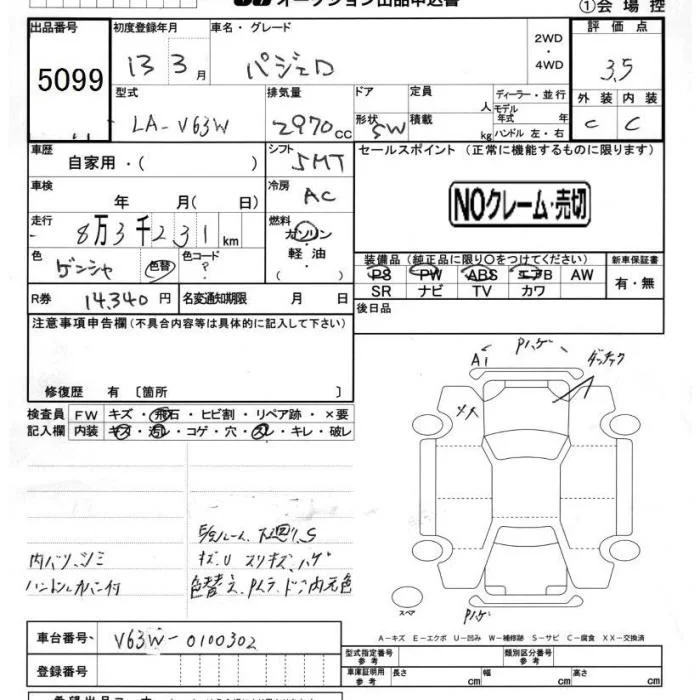 オークション出品申込書
①会場控
出品番号 初度登録年月 車名・グレード 2WD・4WD 評価点
5099 13 3月 パジェロ 3.5
型式 排気量 ドア 定員 人 ディーラー・並行 外装 内装
LA-V63W 2970cc 形状 SW 積載 kg モデル年式 年 ハンドル 左・右 C C
車歴 自家用・( ) シフト 5MT セールスポイント (正常に機能するものに限ります)
車検 年 月( 日) 冷房 AC
NOクレーム・売切
走行 8万3千231km 燃料 ガソリン・軽油
色 ゲンシャ 色替 色コード ? ( )
装備品 (純正品に限り○をつけてください) 新車保証書
PS PW ABS エアB AW 有・無
SR ナビ TV カワ
R券 14,340円 名変通知期限 月 日
後日品
注意事項申告欄(不具合内容等は具体的に記入して下さい)
修復歴 有 〔箇所 〕
検査員 FW キズ・飛石・ヒビ割・リペア跡・×要
記入欄 内装 キズ・汚レ・コゲ・穴・スレ・キレ・破レ
A1 Pハゲ
メス
下回り.S
内バリ.シミ キズ.U スリキズ.ハゲ
ハンドルカバー付 色替え
スペア
Pハゲ
A−キズ E−エクボ U−凹み W−補修跡 S−サビ C−腐食 XX−交換済
車台番号 V63W-0100302
型式指定番号 参考 類別区分番号 参考
登録番号
車庫証明用 参考 長さ cm 幅 cm 高さ cm